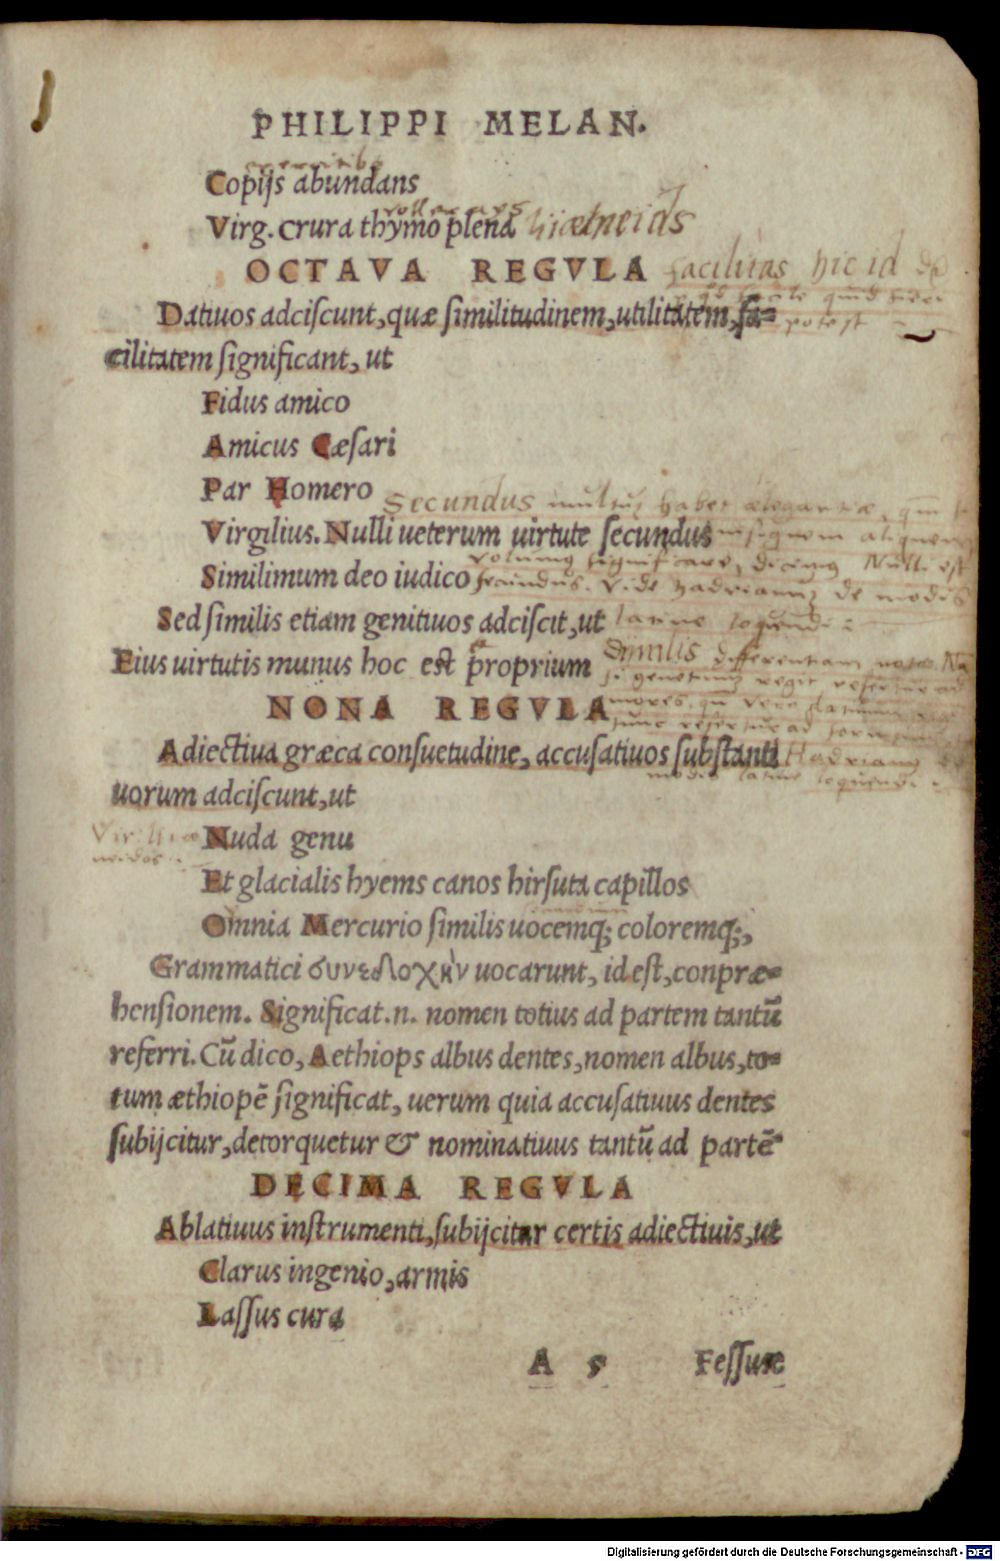 PHILIPPI MELAN.
Copijs abundans
Virg. crura thymo plena
OCTAVA REGVLA facilitas hic id
Datiuos adciſcunt, quæ ſimilitudinem, utilitatem, fa-
potest
cilitatem ſignificant, ut
Fidus amico
Amicus Cæſari
Par Homero
Secundus multus habet
Virgilius. Nulli ueterum uirtute ſecundus
Similimum deo iudico
significare, dicimus Nulli est
secundus. Vide hadrianum de modis
Sed ſimilis etiam genitiuos adciſcit, ut
latine loquendi
Eius uirtutis munus hoc est proprium
Similis differentiam
NONA REGVLA
Adiectiua græca conſuetudine, accuſatiuos ſubstanti
Hadrianum
latine loquendi
uorum adciſcunt, ut
Nuda genu
Et glacialis hyems canos hirſuta capillos
Omnia Mercurio ſimilis uocemq; coloremq;,
Grammatici συνεδοχὴν uocarunt, id est, conpræ-
henſionem. Significat .n. nomen totius ad partem tantū
referri. Cū dico, Aethiops albus dentes, nomen albus, to-
tum æthiopē ſignificat, uerum quia accuſatiuus dentes
ſubijcitur, detorquetur & nominatiuus tantū ad partē
DECIMA REGVLA
Ablatiuus inſtrumenti, ſubijcitur certis adiectiuis, ut
Clarus ingenio, armis
Laſſus cura
A 5 Feſſus
Digitalisierung gefördert durch die Deutsche Forschungsgemeinschaft - DFG